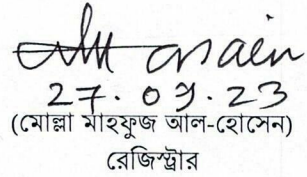 27.09.23
(মোল্লা মাহফুজ আল-হোসেন)
রেজিস্ট্রার